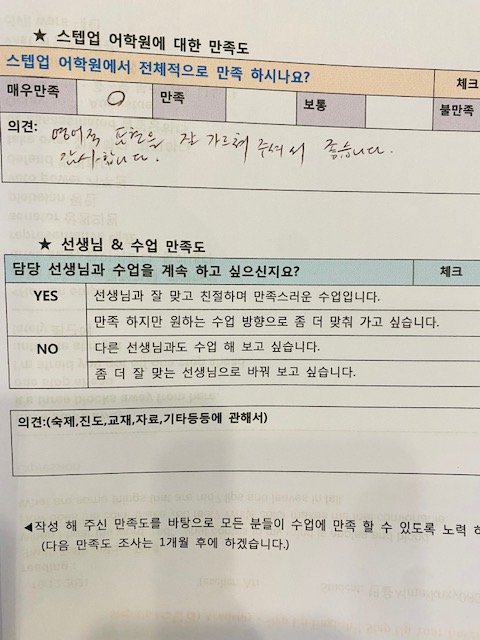 ★ 스텝업 어학원에 대한 만족도
스텝업 어학원에서 전체적으로 만족 하시나요? 체크
매우만족 O 만족 보통 불만족
의견: 영어적 표현을 잘 가르쳐 주셔서 좋습니다.
감사합니다.
★ 선생님 & 수업 만족도
담당 선생님과 수업을 계속 하고 싶으신지요? 체크
YES 선생님과 잘 맞고 친절하며 만족스러운 수업입니다.
만족 하지만 원하는 수업 방향으로 좀 더 맞춰 가고 싶습니다.
NO 다른 선생님과도 수업 해 보고 싶습니다.
좀 더 잘 맞는 선생님으로 바꿔 보고 싶습니다.
의견:(숙제,진도,교재,자료,기타등등에 관해서)
◀작성 해 주신 만족도를 바탕으로 모든 분들이 수업에 만족 할 수 있도록 노력 하
(다음 만족도 조사는 1개월 후에 하겠습니다.)